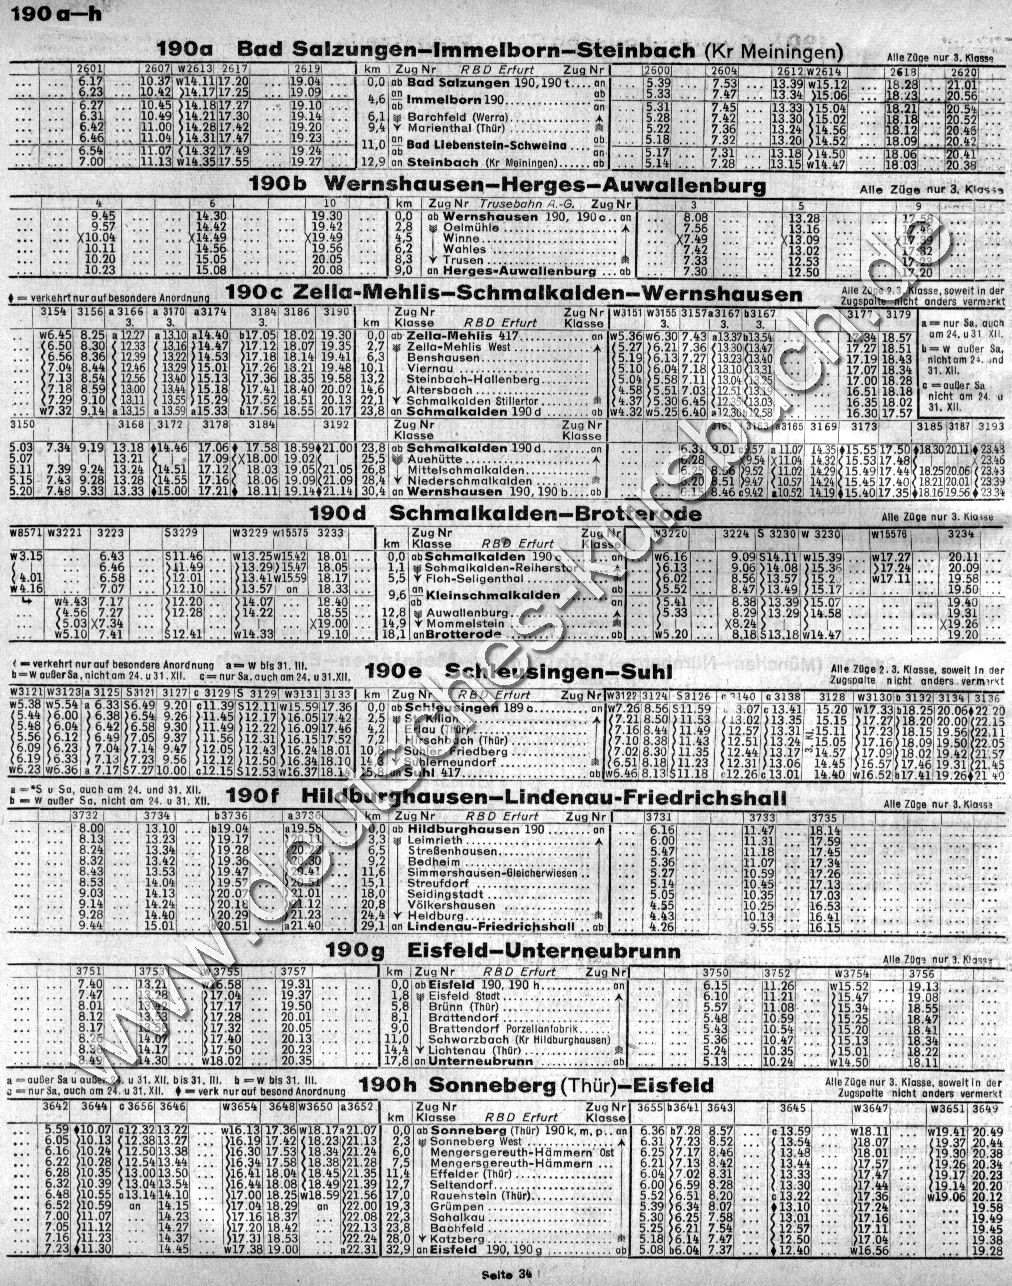 190 a–h
190a Bad Salzungen–Immelborn–Steinbach (Kr Meiningen) Alle Züge nur 3. Klasse
2601 2607 W2613 2617 2619 km Zug Nr RBD Erfurt Zug Nr 2600 2604 2612 W2614 2618 2620
6.17 10.37 W14.11 17.20 19.04 0,0 ab Bad Salzungen 190, 190 t an 5.39 7.53 13.39 W15.12 18.28 21.01
6.23 10.42 14.17 17.25 19.09 an ab 5.33 7.47 13.34 15.06 18.23 20.56
4,6 Immelborn 190
6.27 10.45 14.18 17.27 19.10 ab an 5.31 7.45 13.33 15.04 18.21 20.54
6.31 10.49 14.21 17.30 19.14 6,1 Barchfeld (Werra) 5.28 7.42 13.30 15.02 18.18 20.52
6.42 11.00 14.28 17.42 19.20 9,4 Marienthal (Thür) 5.22 7.36 13.24 14.56 18.12
6.46 11.04 14.31 17.47 19.23 an ab 5.18 7.32 13.20 14.52 18.09 20.42
11,0 Bad Liebenstein-Schweina
6.54 11.07 14.32 17.49 19.24 ab an 5.17 7.31 13.18 14.50 18.06 20.41
7.00 11.13 W14.35 17.55 19.27 12,9 an Steinbach (Kr Meiningen) ab 5.14 7.28 13.15 W14.47 18.03 20.38
190b Wernshausen–Herges–Auwallenburg Alle Züge nur 3. Klasse
4 6 10 km Zug Nr Trusebahn A.-G. Zug Nr 3 5 9
9.45 14.30 19.30 0,0 ab Wernshausen 190, 190 c an 8.08 13.28
9.57 14.42 19.42 2,8 Oelmühle 7.56 13.16
X10.04 X14.49 X19.49 4,5 Winne X7.49 X13.09
10.11 14.56 19.56 6,2 Wahles 7.42 13.02
10.20 15.05 20.05 8,3 Trusen 7.33 12.53
10.23 15.08 20.08 9,0 an Herges-Auwallenburg ab 7.30 12.50 17.20
♦ = verkehrt nur auf besondere Anordnung 190c Zella-Mehlis–Schmalkalden–Wernshausen Alle Züge 2. 3. Klasse, soweit in der Zugspalte nicht anders vermerkt
3154 3156 a 3166 a 3170 a3174 3184 3186 3190 Zug Nr Klasse RBD Erfurt Zug Nr Klasse W3151 W3155 3157 a3167 b3167 3177 3179
W6.45 8.25 a12.27 a13.10 a14.40 b17.05 18.02 19.30 0,0 ab Zella-Mehlis 417 an W5.36 W6.30 7.43 a13.37 b13.54 18.57
6.50 8.30 12.33 13.16 14.47 17.12 18.07 19.35 2,7 Zella-Mehlis West 5.27 6.21 7.36 13.30 13.47 17.27 18.51
6.56 8.36 12.39 13.22 14.53 17.18 18.14 19.41 6,3 Benshausen 5.19 6.13 7.27 13.23 13.40 17.19 18.43
7.04 8.44 12.46 13.29 15.01 17.26 18.21 19.48 10,1 Viernau 5.10 6.04 7.18 13.10 13.31 17.07 18.34
7.13 8.54 12.56 13.40 15.13 17.36 18.35 19.58 13,2 Steinbach-Hallenberg 5.04 5.58 7.11 17.00 18.28
7.18 8.59 13.00 13.44 15.18 17.41 18.40 20.02 14,6 Altersbach 4.58 5.51 7.03 16.51 18.18
7.29 9.10 13.11 13.55 15.29 17.52 18.51 20.13 22,1 Schmalkalden Stillertor 4.37 5.30 6.45 16.35 18.02
W7.32 9.14 a13.15 a13.59 a15.33 b17.56 18.55 20.17 23,8 an Schmalkalden 190 d ab W4.32 W5.25 6.40 16.30 17.57
a = nur Sa, auch am 24. u 31. XII.
b = W außer Sa, nicht am 24. und 31. XII.
c = außer Sa nicht am 24. u 31. XII.
3150 3168 3172 3178 3184 3192 Zug Nr Klasse RBD Erfurt Zug Nr Klasse a3165 3169 3173 3185 3187 3193
5.03 7.34 9.19 13.18 ♦14.46 17.06 ♦17.58 18.59 ♦21.00 23,8 ab Schmalkalden 190 d an 9.01 a11.07 14.35 ♦15.55 17.50 ♦18.30 20.11 ♦23.48
5.07 13.21 17.09 X18.00 19.02 25,5 Auehütte X11.04 14.32 15.53 17.48 23.46
5.11 7.39 9.24 13.24 14.51 17.12 18.03 19.05 21.05 26,8 Mittelschmalkalden 11.02 14.29 15.49 17.44 18.25 20.06 23.43
5.15 7.43 9.28 13.28 14.55 17.16 18.06 19.09 21.09 28,4 Niederschmalkalden 8.51 10.57 14.24 15.45 17.40 18.21 20.01 23.39
5.20 7.48 9.33 13.33 ♦15.00 17.21 ♦18.11 19.14 ♦21.14 30,4 an Wernshausen 190, 190 b ab 8.46 c9.42 a10.52 14.19 ♦15.40 17.35 ♦18.16 19.56 ♦23.34
190d Schmalkalden–Brotterode Alle Züge nur 3. Klasse
W8571 W3221 3223 S3229 W3229 W15575 3233 km Zug Nr Klasse RBD Erfurt Zug Nr Klasse W3220 3224 S 3230 W 3230 W15576 3234
W3.15 6.43 S11.46 W13.25 W15.42 18.01 0,0 ab Schmalkalden 190 c an W6.16 9.09 S14.11 W15.39 W17.27 20.11
6.46 11.49 13.29 15.47 18.05 1,1 Schmalkalden-Reiherstor 6.13 9.06 14.08 15.36 17.24 20.09
4.01 6.58 12.01 13.41 W15.59 18.17 5,5 Floh-Seligenthal 6.02 8.56 13.57 15.2 W17.11 19.58
W4.16 7.07 12.10 13.57 an 18.33 an ab 5.52 8.47 13.49 15.17 19.50
9,6 Kleinschmalkalden
W4.43 7.17 12.20 14.07 18.40 ab an 5.41 8.38 13.39 15.07 19.40
4.56 7.27 12.28 14.22 18.55 12,8 Auwallenburg 5.33 8.29 13.29 14.58 19.31
5.03 X7.34 X19.00 14,9 Mommelstein X8.24 X19.26
W5.10 7.41 S12.41 W14.33 19.10 18,1 an Brotterode ab W5.20 8.18 S13.18 W14.47 19.20
( = verkehrt nur auf besondere Anordnung a = W bis 31. III.
b = W außer Sa, nicht am 24. u 31. XII. c = nur Sa, auch am 24. u 31. XII.
190e Schleusingen–Suhl Alle Züge 2. 3. Klasse, soweit in der Zugspalte nicht anders vermerkt
W3121 W3123 a 3125 S3121 3127 c 3129 S 3129 W3131 3133 km Zug Nr RBD Erfurt Zug Nr W3122 3124 S3126 c 3140 c 3138 3128 W3130 b 3132 3134 3136
W5.38 W5.54 a 6.33 S6.49 9.20 c11.39 S12.11 W15.59 17.36 0,0 ab Schleusingen 189 c an W7.26 8.56 S11.59 13.41 15.20 W17.33 b18.25 20.06 22.20
5.44 6.00 6.38 6.54 9.26 11.45 12.17 16.05 17.42 2,5 St Kilian 7.21 8.50 11.53 13.02 13.35 15.15 17.27 18.20 20.00 22.15
5.48 6.04 6.42 6.58 9.30 11.49 12.22 16.09 17.46 4,2 Erlau (Thür) 7.16 8.44 11.49 12.57 13.31 15.11 17.23 18.15 19.56 22.11
5.56 6.12 6.49 7.05 9.37 11.56 12.31 16.15 17.52 7,2 Hirschbach (Thür) 7.10 8.38 11.43 12.51 13.24 15.05 17.16 18.09 19.50 22.05
6.09 6.23 7.04 7.14 9.47 12.05 12.43 16.24 18.01 Suhler Neundorf 7.02 8.30 11.35 12.44 13.12 14.57 17.09 18.02 19.42 21.57
6.19 6.33 7.13 7.23 9.56 12.12 12.50 16.34 18.10 6.51 8.18 11.23 12.31 13.06 14.45 16.57 17.46 19.31 21.45
W6.23 W6.36 a 7.17 10.00 c12.15 S12.53 W16.37 18.14 an Suhl 417 ab W6.46 8.13 S11.18 c12.26 c13.01 14.40 W16.52 b17.41 19.26 ♦21.40
a = *S u Sa, auch am 24. und 31. XII.
b = W außer Sa, nicht am 24. u 31. XII.
190f Hildburghausen–Lindenau-Friedrichshall Alle Züge nur 3. Klasse
3732 3734 b3736 a3736 km Zug Nr RBD Erfurt Zug Nr 3731 3733 3735
8.00 13.10 b19.04 a19.58 0,0 ab Hildburghausen 190 an 6.16 11.47 18.14
8.13 13.23 19.17 3,3 Leimrieth 6.00 11.31 17.59
8.24 13.34 19.28 6,5 Streßenhausen 5.47 11.18 17.45
8.32 13.42 19.36 9,2 Bedheim 5.36 11.07 17.34
8.43 13.53 19.47 11,6 Simmershausen-Gleicherwiesen 5.27 10.59 17.26
8.53 14.04 19.57 15,1 Streufdorf 5.14 10.45 17.13
9.03 14.13 20.07 21.01 18,0 Seidingstadt 5.05 10.35 17.03
9.14 14.24 20.18 21.12 20,8 Völkershausen 4.55 10.25 16.53
9.28 14.40 20.29 21.23 24,4 Heldburg 4.43 10.13 16.41
9.44 15.01 b20.51 a21.40 29,1 an Lindenau-Friedrichshall ab 4.26 9.55 16.15
190g Eisfeld–Unterneubrunn Alle Züge nur 3. Klasse
3751 3753 W3755 3757 km Zug Nr RBD Erfurt Zug Nr 3750 3752 W3754 3756
7.40 13.21 W16.58 19.31 0,0 ab Eisfeld 190, 190 h an 6.15 11.26 W15.52 19.13
7.47 13.28 17.04 19.37 1,8 Eisfeld Stadt 6.10 11.21 15.47 19.08
8.01 17.17 19.50 5,8 Brünn (Thür) 5.57 11.08 15.34 18.55
8.12 17.28 20.01 8,1 Brattendorf 5.48 10.59 15.25 18.47
8.17 17.32 20.05 9,0 Brattendorf Porzellanfabrik 5.43 10.54 15.20 18.41
14.07 17.40 20.13 11,0 Schwarzbach (Kr Hildburghausen) 5.36 10.47 15.13 18.34
14.17 17.50 20.23 14,4 Lichtenau (Thür) 5.24 10.35 15.01 18.22
14.30 W18.02 20.35 17,8 an Unterneubrunn ab 5.13 10.24 W14.50 18.11
a = außer Sa u außer 24. u 31. XII. bis 31. III. b = W bis 31. III.
c = nur Sa, auch am 24. u 31. XII. ♦ = verk nur auf besond Anordnung
190h Sonneberg (Thür)–Eisfeld Alle Züge nur 3. Klasse, soweit in der Zugspalte nicht anders vermerkt
3642 3644 c 3656 3646 W3654 3648 W3650 a3652 km Zug Nr Klasse RBD Erfurt Zug Nr Klasse 3655 b3641 3643 3645 W3647 W3651 3649
5.59 ♦10.07 c12.32 13.22 W16.13 17.36 W18.17 a21.07 0,0 ab Sonneberg (Thür) 190 k, m, p an 6.36 b7.28 8.57 c13.59 W18.11 W19.41 20.49
6.05 10.13 12.38 13.27 16.19 17.42 18.23 21.13 2,3 Sonneberg West 6.31 7.23 8.52 13.54 18.07 19.37 20.44
6.16 10.24 12.50 13.38 16.30 17.53 18.34 21.24 6,0 Mengersgereuth-Hämmern Ost 6.25 7.17 8.46 13.48 18.01 19.30 20.38
6.22 10.28 12.54 13.44 16.34 17.58 18.38 21.28 7,5 Mengersgereuth-Hämmern 6.21 7.13 8.42 13.44 17.57 19.26 20.34
6.28 10.35 13.00 13.50 16.41 18.04 18.45 21.35 11,4 Effelder (Thür) 6.04 7.02 8.31 13.33 17.47 19.17 20.23
6.32 10.39 13.04 13.54 16.44 18.08 18.49 21.39 12,7 Seltendorf 6.00 6.59 8.28 13.30 17.44 19.14 20.20
6.48 10.55 c13.14 14.10 17.00 18.25 W18.59 21.56 17,0 Rauenstein (Thür) 5.52 6.51 8.20 c13.22 17.36 W19.06 20.12
6.52 10.59 an 14.15 17.04 18.29 an 22.00 19,3 Grümpen 5.39 6.34 8.07 ♦13.10 17.24 19.58
7.00 11.07 14.23 17.16 18.37 22.08 22,3 Schalkau 5.30 6.25 7.58 13.01 17.16 19.49
7.05 11.12 14.27 17.20 18.42 22.13 23,8 Bachfeld 5.25 6.21 7.54 12.57 17.11 19.45
7.16 11.23 14.37 17.31 18.53 22.24 28,0 Katzberg 5.18 6.14 7.47 12.50 17.04 19.38
7.23 ♦11.30 14.45 W17.38 19.00 a22.31 32,9 an Eisfeld 190, 190 g ab 5.08 b6.04 7.37 ♦12.40 W16.56 19.28
Seite 34
www.deutsches-kursbuch.de